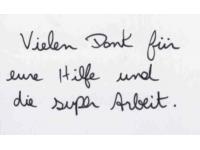 Vielen Dank für
eure Hilfe und
die super Arbeit.